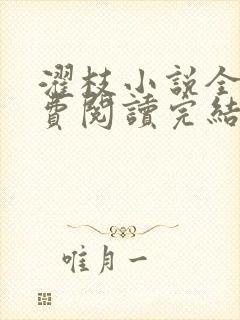 濯枝小説全
費閱讀完結
唯月一